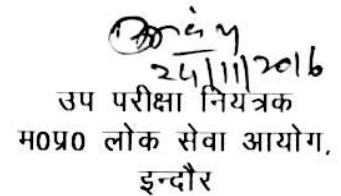 24/11/2016
उप परीक्षा नियंत्रक
म0प्र0 लोक सेवा आयोग,
इन्दौर